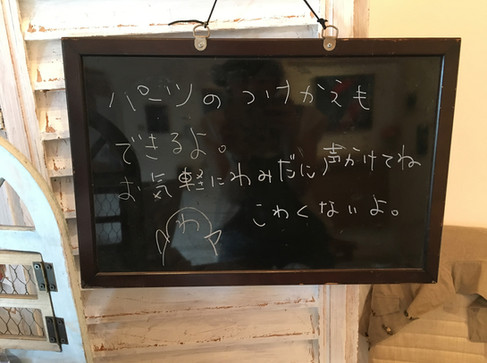 パーツのつけかえも
できるよ。
お気軽にわみだに声かけてね
こわくないよ。
わ